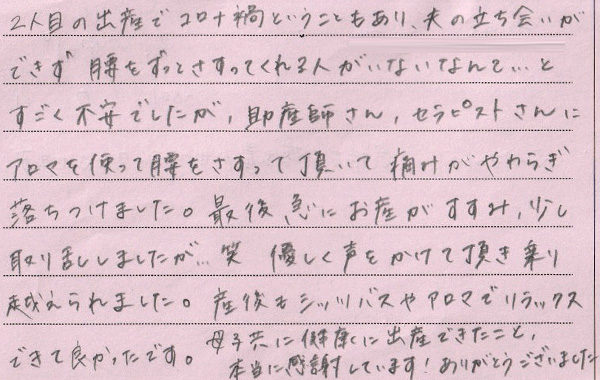 2人目の出産でコロナ禍ということもあり、夫の立ち会いが
できず 腰をずっとさすってくれる人がいないなんて…と
すごく不安でしたが、助産師さん、セラピストさんに
アロマを使って腰をさすって頂いて 痛みがやわらぎ
落ちつけました。最後、急にお産がすすみ、少し
取り乱ししましたが…笑 優しく声をかけて頂き乗り
越えられました。産後もシッツバスやアロマでリラックス
できて良かったです。母子共に健康に出産できたこと、
本当に感謝しています!ありがとうございました